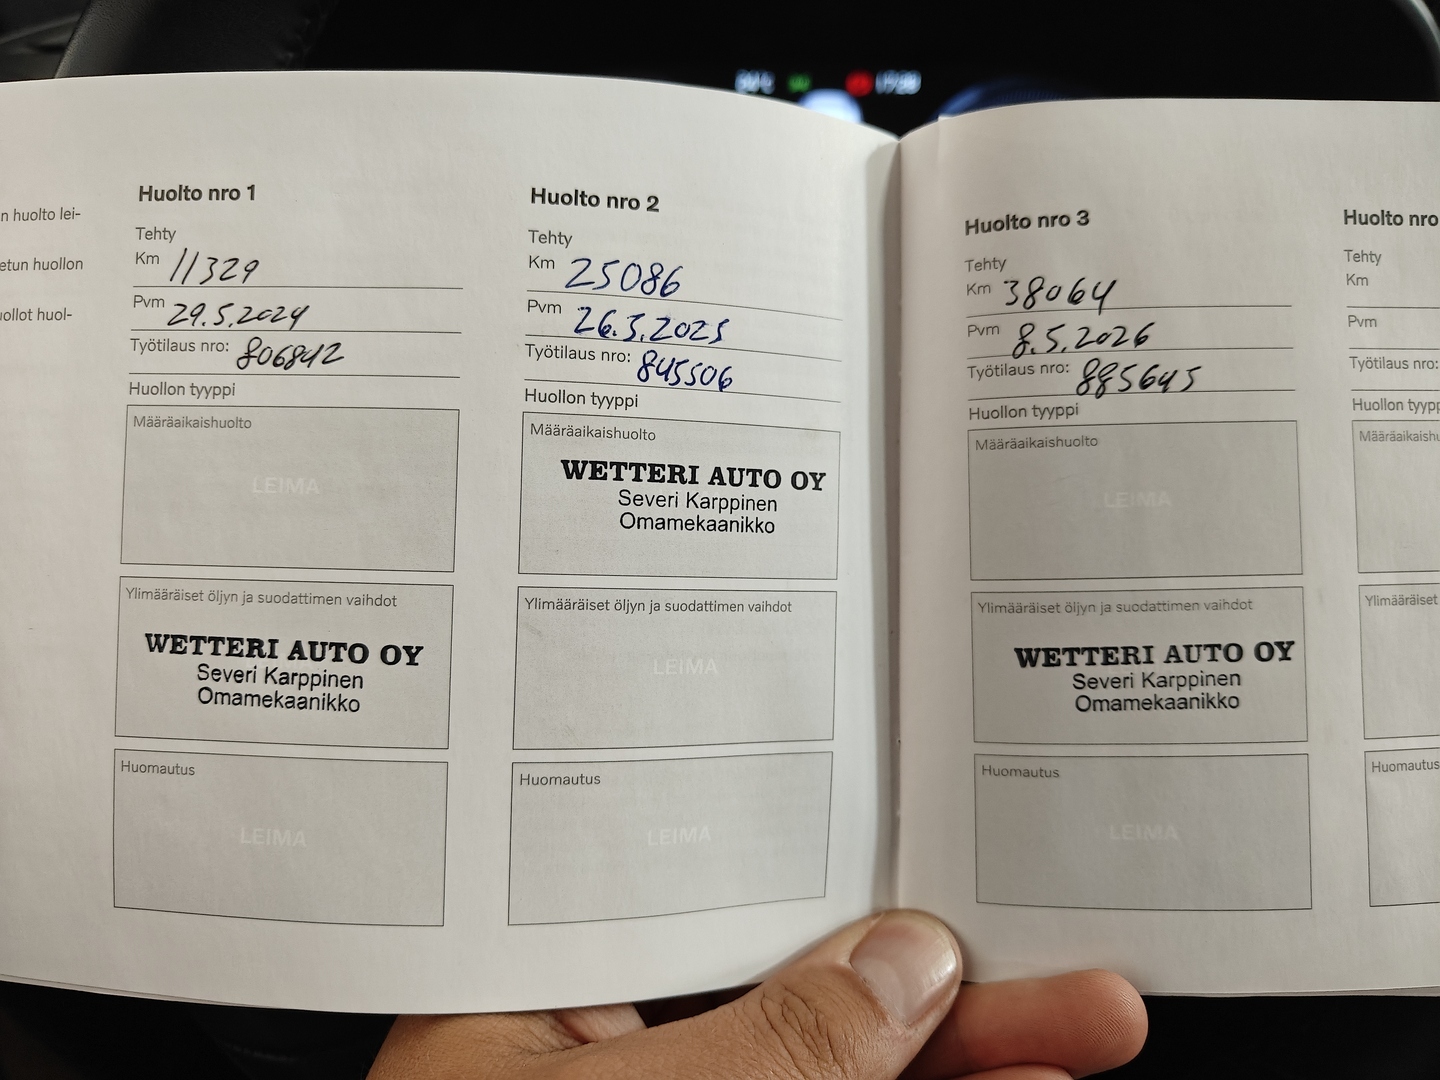 n huolto lei-
etun huollon
uollot huol-
Huolto nro 1
Tehty
Km 11329
Pvm 29.5.2024
Työtilaus nro: 806842
Huollon tyyppi
Määräaikaishuolto
LEIMA
Ylimääräiset öljyn ja suodattimen vaihdot
WETTERI AUTO OY
Severi Karppinen
Omamekaanikko
Huomautus
LEIMA
Huolto nro 2
Tehty
Km 25086
Pvm 26.5.2025
Työtilaus nro: 845506
Huollon tyyppi
Määräaikaishuolto
WETTERI AUTO OY
Severi Karppinen
Omamekaanikko
Ylimääräiset öljyn ja suodattimen vaihdot
LEIMA
Huomautus
LEIMA
Huolto nro 3
Tehty
Km 38064
Pvm 8.5.2026
Työtilaus nro: 885645
Huollon tyyppi
Määräaikaishuolto
LEIMA
Ylimääräiset öljyn ja suodattimen vaihdot
WETTERI AUTO OY
Severi Karppinen
Omamekaanikko
Huomautus
LEIMA
Huolto nro
Tehty
Km
Pvm
Työtilaus nro:
Huollon tyypp
Määräaikaishu
Ylimääräiset
Huomautus